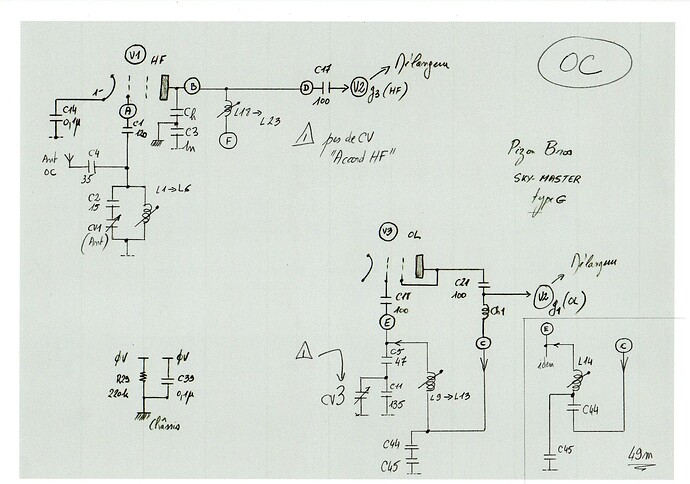 OC
V1 HF
1-
C14
0,1µ
A
C1
120
B
Ch
C3
1n
L12→L23
F
D
C17
100
V2
Mélangeur
g3 (HF)
⚠ pas de CV
"Accord HF"
Ant
OC
C4
35
C2
15
CV1
(Ant)
L1→L6
Pizon Bros
SKY-MASTER
type G
V3 OL
C18
100
E
C21
100
Ch1
C
Mélangeur
V2
g1 (OL)
C5
47
CV3
C11
135
L9→L13
C44
C45
ϕV ϕV
R29
220k
C39
0,1µ
Châssis
E
idem
L14
C
C44
C45
49m